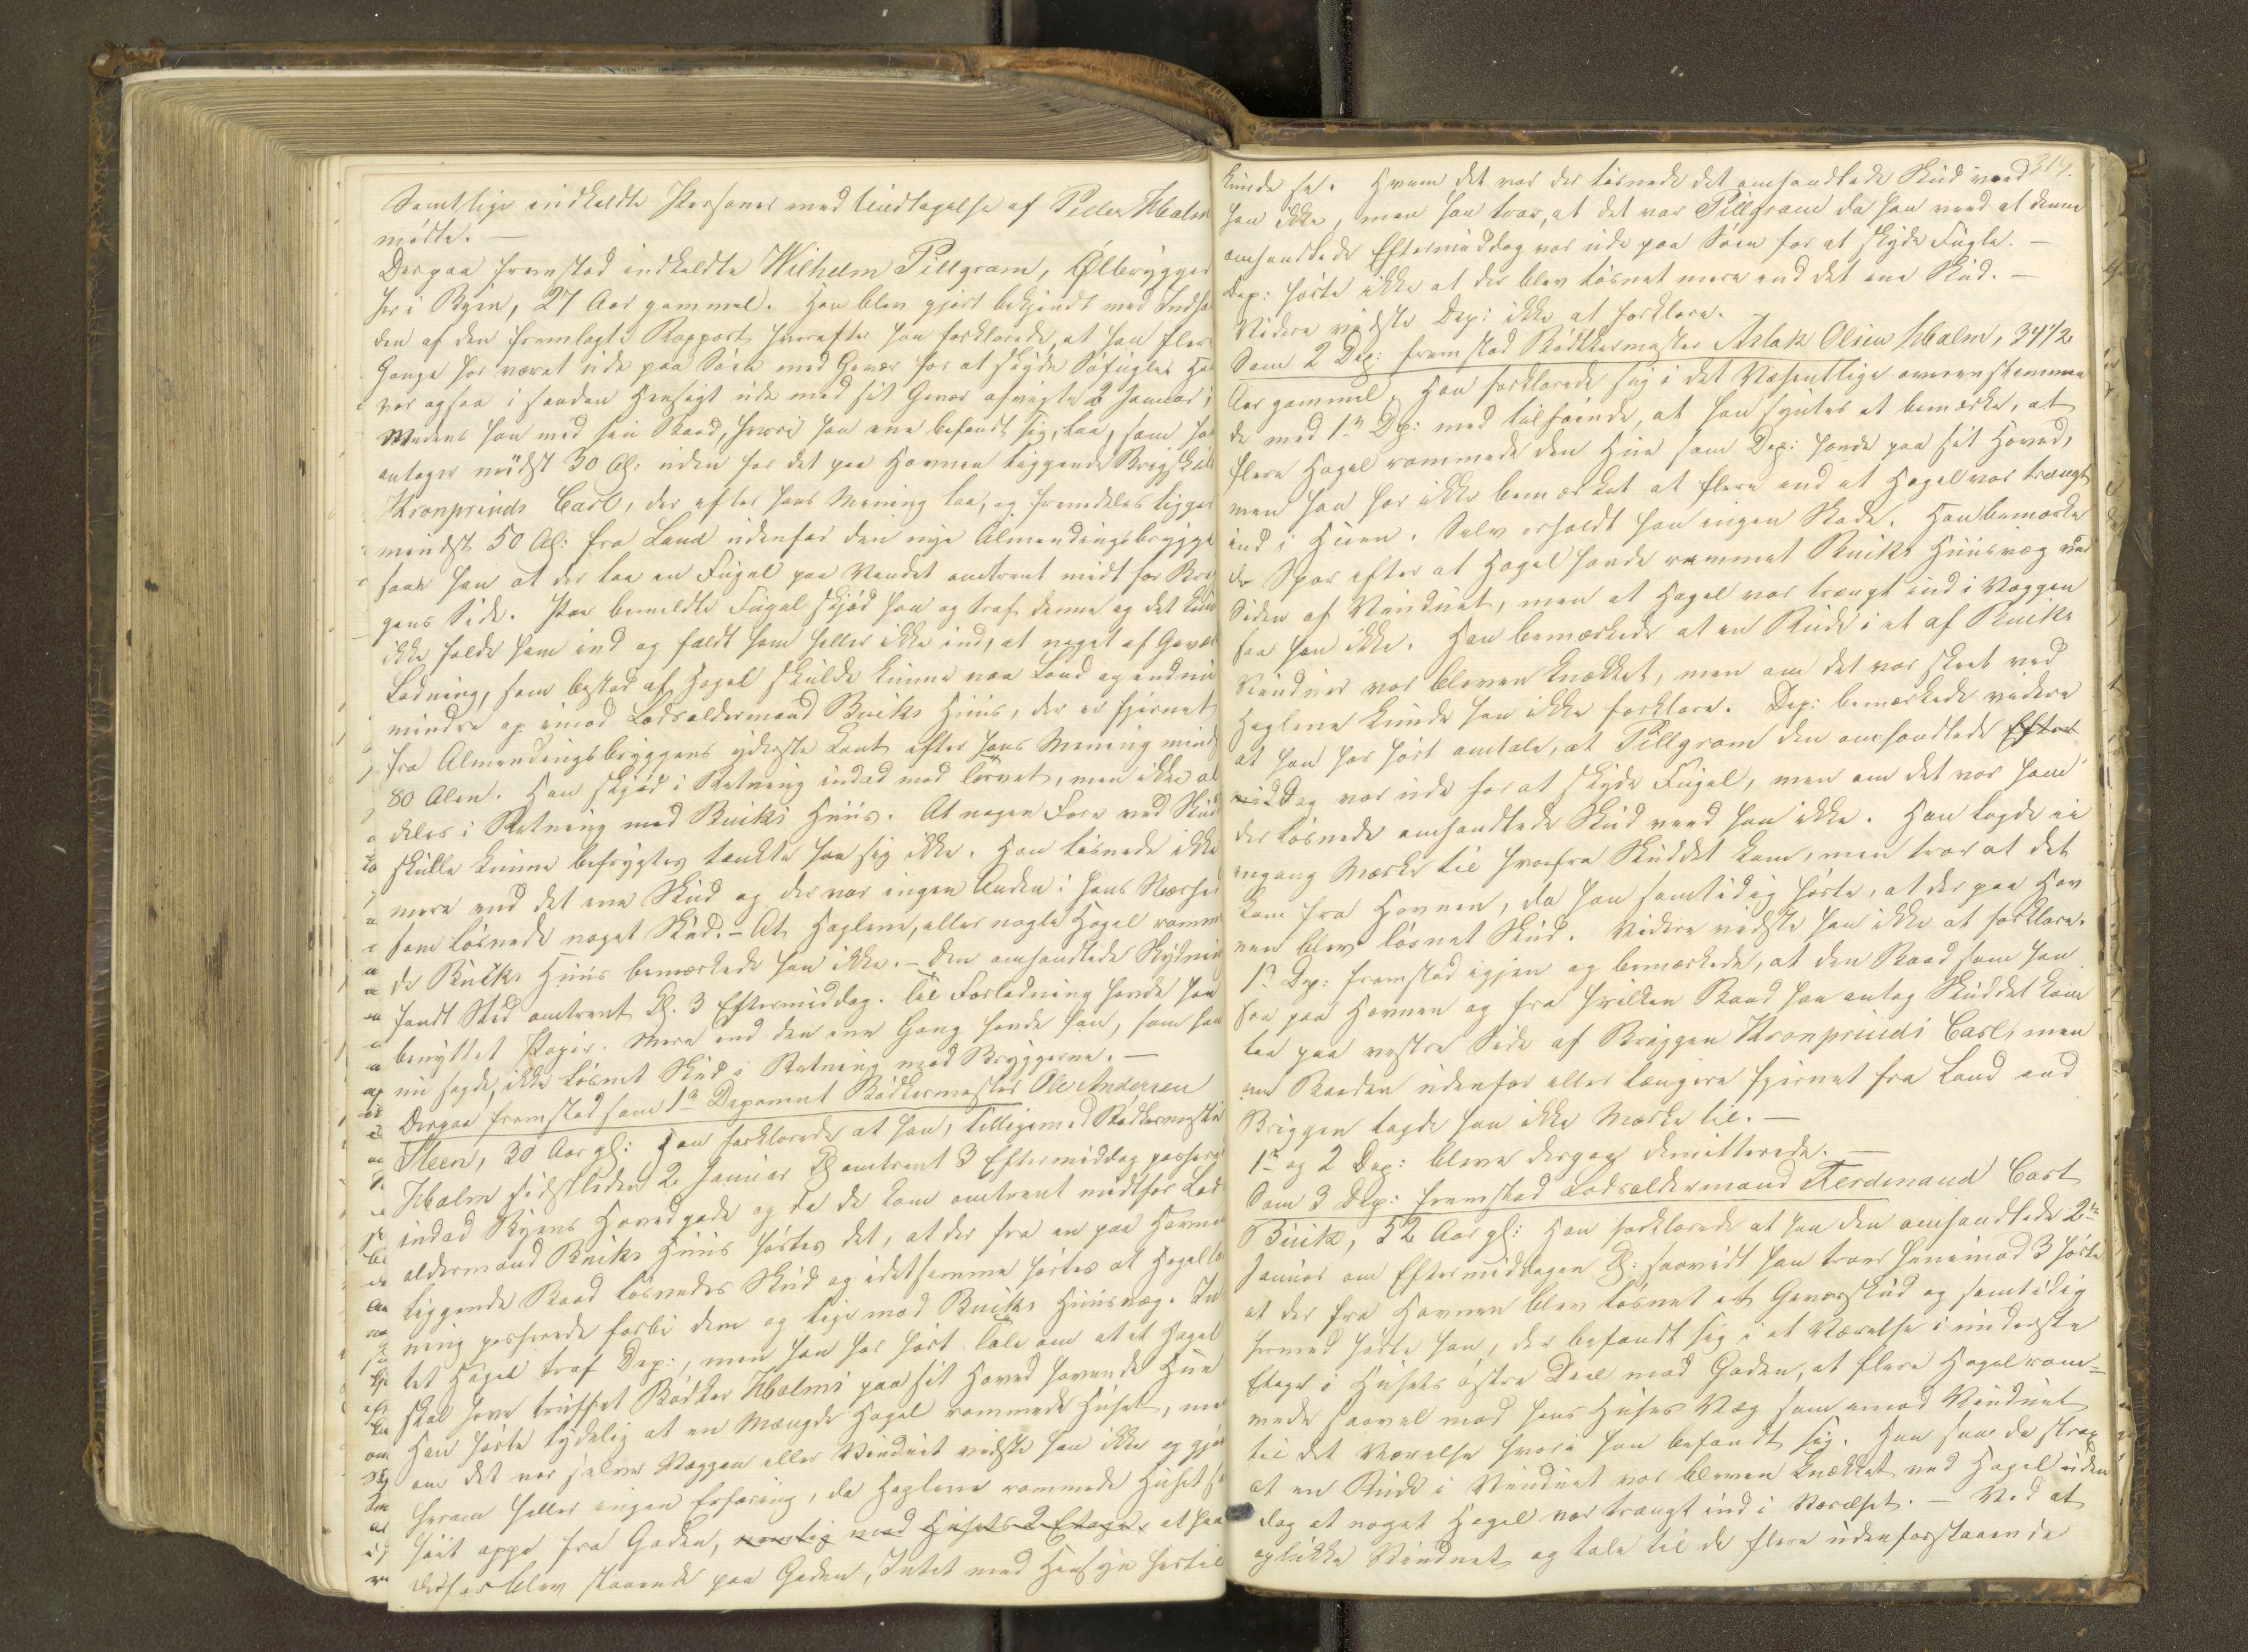 Samtlige indkaldte Personer med Undtagelse af Peder Hbalm
mödte. —
Derpaa fremstod indkaldte Wilhelm Pillgram, Ølbrygger
her i Byen, 27 Aar gammel. Han blev gjort bekjendt med Indhol
den af den fremlagte Rapport hvorefter han forklarede, at han flere
Gange har været ude paa Söen med Gevær for at skyde Söfugle. Han
var ogsaa i saadan Hensigt ude med sit Gevær afvigte 2 Januar;
Medens han med sin Baad, hvori han ene befandt sig, laa, som han
antager mindst 30 Al: uden for det paa Havnen liggende Brigskib
Kronprinds Carl, der efter hans Mening laa, og fremdeles ligger
mindst 50 Al: fra Land udenfor den nye Almendingsbrygge
saae han at der laa en Fugel paa Vandet omtrent midt for Brig
gens Side. Paa bemeldte Fugel skjöd han og traf denne og det kun
ikke faldt ham ind og faldt ham heller ikke ind, at noget af Gevær
Ladning, som bestod af Hagel skulde kunne naa Land og endnu
mindre op imod Lodsoldermand Buiks Huus, der er fjernet
fra Almendingsbryggens yderste Kant efter hans Mening mind
80 Alen. Han skjöd i Retning indad mod Torvet, men ikke al
deles i Retning mod Buiks Huus. At nogen Fare ved Skud
skulle kunne befrygtes tænkte han sig ikke. Han lösnede ikke
mere end det ene Skud og der var ingen Anden i hans Nærhed
som lösnede noget Skud. — At Haglene, eller nogle Hagel ramme
de Buiks Huus bemærkede han ikke. — Den omhandlede Skydning
fandt Sted omtrent Kl. 3 Eftermiddag. Til Forladning havde han
benyttet Papir. Mere end den ene Gang havde han, som han
nu sagde, ikke lösnet Skud i Retning mod Bryggerne. —
Derpaa fremstod som 1ste Deponent Bödkermester Ole Andersen
Steen, 30 Aar gl: Han forklarede at han, tilligemed Bödkermester
Hbalm sidstleden 2 Januar Kl omtrent 3 Eftermiddag passere
indad Byens Hovedgade og da de kom omtrent midtfor Lods
oldermand Buiks Huus hörtes det, at der fra en paa Havnen
liggende Baad lösnedes Skud og idetsamme hörtes at Hagella
ning passerede forbi dem og lige mod Buiks Huusvæg. In
tet Hagel traf Dep:, men han har hört Tale om at et Hagel
skal have truffet Bödker Hbalms paa sit Hoved havende Hue
Han hörte tydelig at en Mængde Hagel rammede Huset, men
om det var selve Væggen eller Vinduet vidste han ikke og gjör
herom heller ingen Erfaring, da Haglene rammede Huset saa
höit oppe fra Gaden, nemlig mod Husets 2 Etage, at han
derfor blev staaende paa Gaden, Intet med Hensyn hertil
319.
kunde se. Hvem det var der lösnede det omhandlede Skud veed
han ikke, men han tror, at det var Pillgram da han veed at denne
omhandlede Eftermiddag var ude paa Söen for at skyde Fugle. —
Dep: hörte ikke at der blev lösnet mere end det ene Skud. —
Videre vidste Dep: ikke at forklare.
Som 2 Dep: fremstod Bödkermester Aslak Olsen Hbalm, 34 1/2
Aar gammel. Han forklarede sig i det Væsentlige overensstemmen
de med 1ste Dep: med tilföiende, at han syntes at bemærke, at
flere Hagel rammede den Hue som Dep: havde paa sit Hoved,
men han har ikke bemærket at flere end et Hagel var trængt
ind i Huen. Selv erholdt han ingen Skade. Han bemærke
de Spor efter at Hagel havde rammet Buiks Huusvæg ved
Siden af Vinduet, men at Hagel var trængt ind i Væggen
saa han ikke. Han bemærkede at en Rude i et af Buiks
Vinduer var bleven knækket, men om det var skeet ved
Haglene kunde han ikke forklare. Dep: bemærkede videre
at han har hört omtale, at Pillgram den omhandlede Efter
middag var ude for at skyde Fugel, men om det var ham
der lösnede omhandlede Skud veed han ikke. Han lagde ei
engang Mærke til hvorfra Skuddet kom, men tror at det
kom fra Havnen, da han samtidig hörte, at der paa Hav
nen blev lösnet Skud. Videre vidste han ikke at forklare.
1ste Dep: fremstod igjen og bemærkede, at den Baad som han
saa paa Havnen og fra hvilken Baad han antog Skuddet kom
laa paa vestre Side af Briggen Kronprinds Carl, men
om Baaden udenfor eller længere fjernet fra Land end
Briggen lagde han ikke Mærke til. —
1ste og 2 Dep: bleve derpaa demitterede. —
Som 3 Dep: fremstod Lodsoldermand Ferdinand Carl
Buik, 52 Aar gl: Han forklarede at han den omhandlede 2den
Januar om Eftermiddagen Kl: saavidt han troer henimod 3 hörte
at der fra Havnen blev lösnet et Geværskud og samtidig
hermed hörte han, der befandt sig i et Værelse i underste
Etage i Husets östre Deel mod Gaden, at flere Hagel ram-
mede saavel mod hans Huses Væg som imod Vinduet
til det Værelse hvori han befandt sig. Han saa da strax
at en Rude i Vinduet var bleven knækket ved Hagel uden
dog at noget Hagel var trængt ind i Værelset. — Ved at
oplukke Vinduet og tale til de flere udenforstaaende